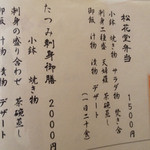 松花堂弁当 1500円
小鉢 焼き物 サラダ物 炊き合
刺身二種盛 天婦羅 茶碗蒸し
御飯 汁 漬物 デザート (一日二十食)
たつみ刺身御膳 2000円
小鉢 焼き物 茶碗蒸し
刺身の盛り合わせ デザート
御飯 汁 漬物